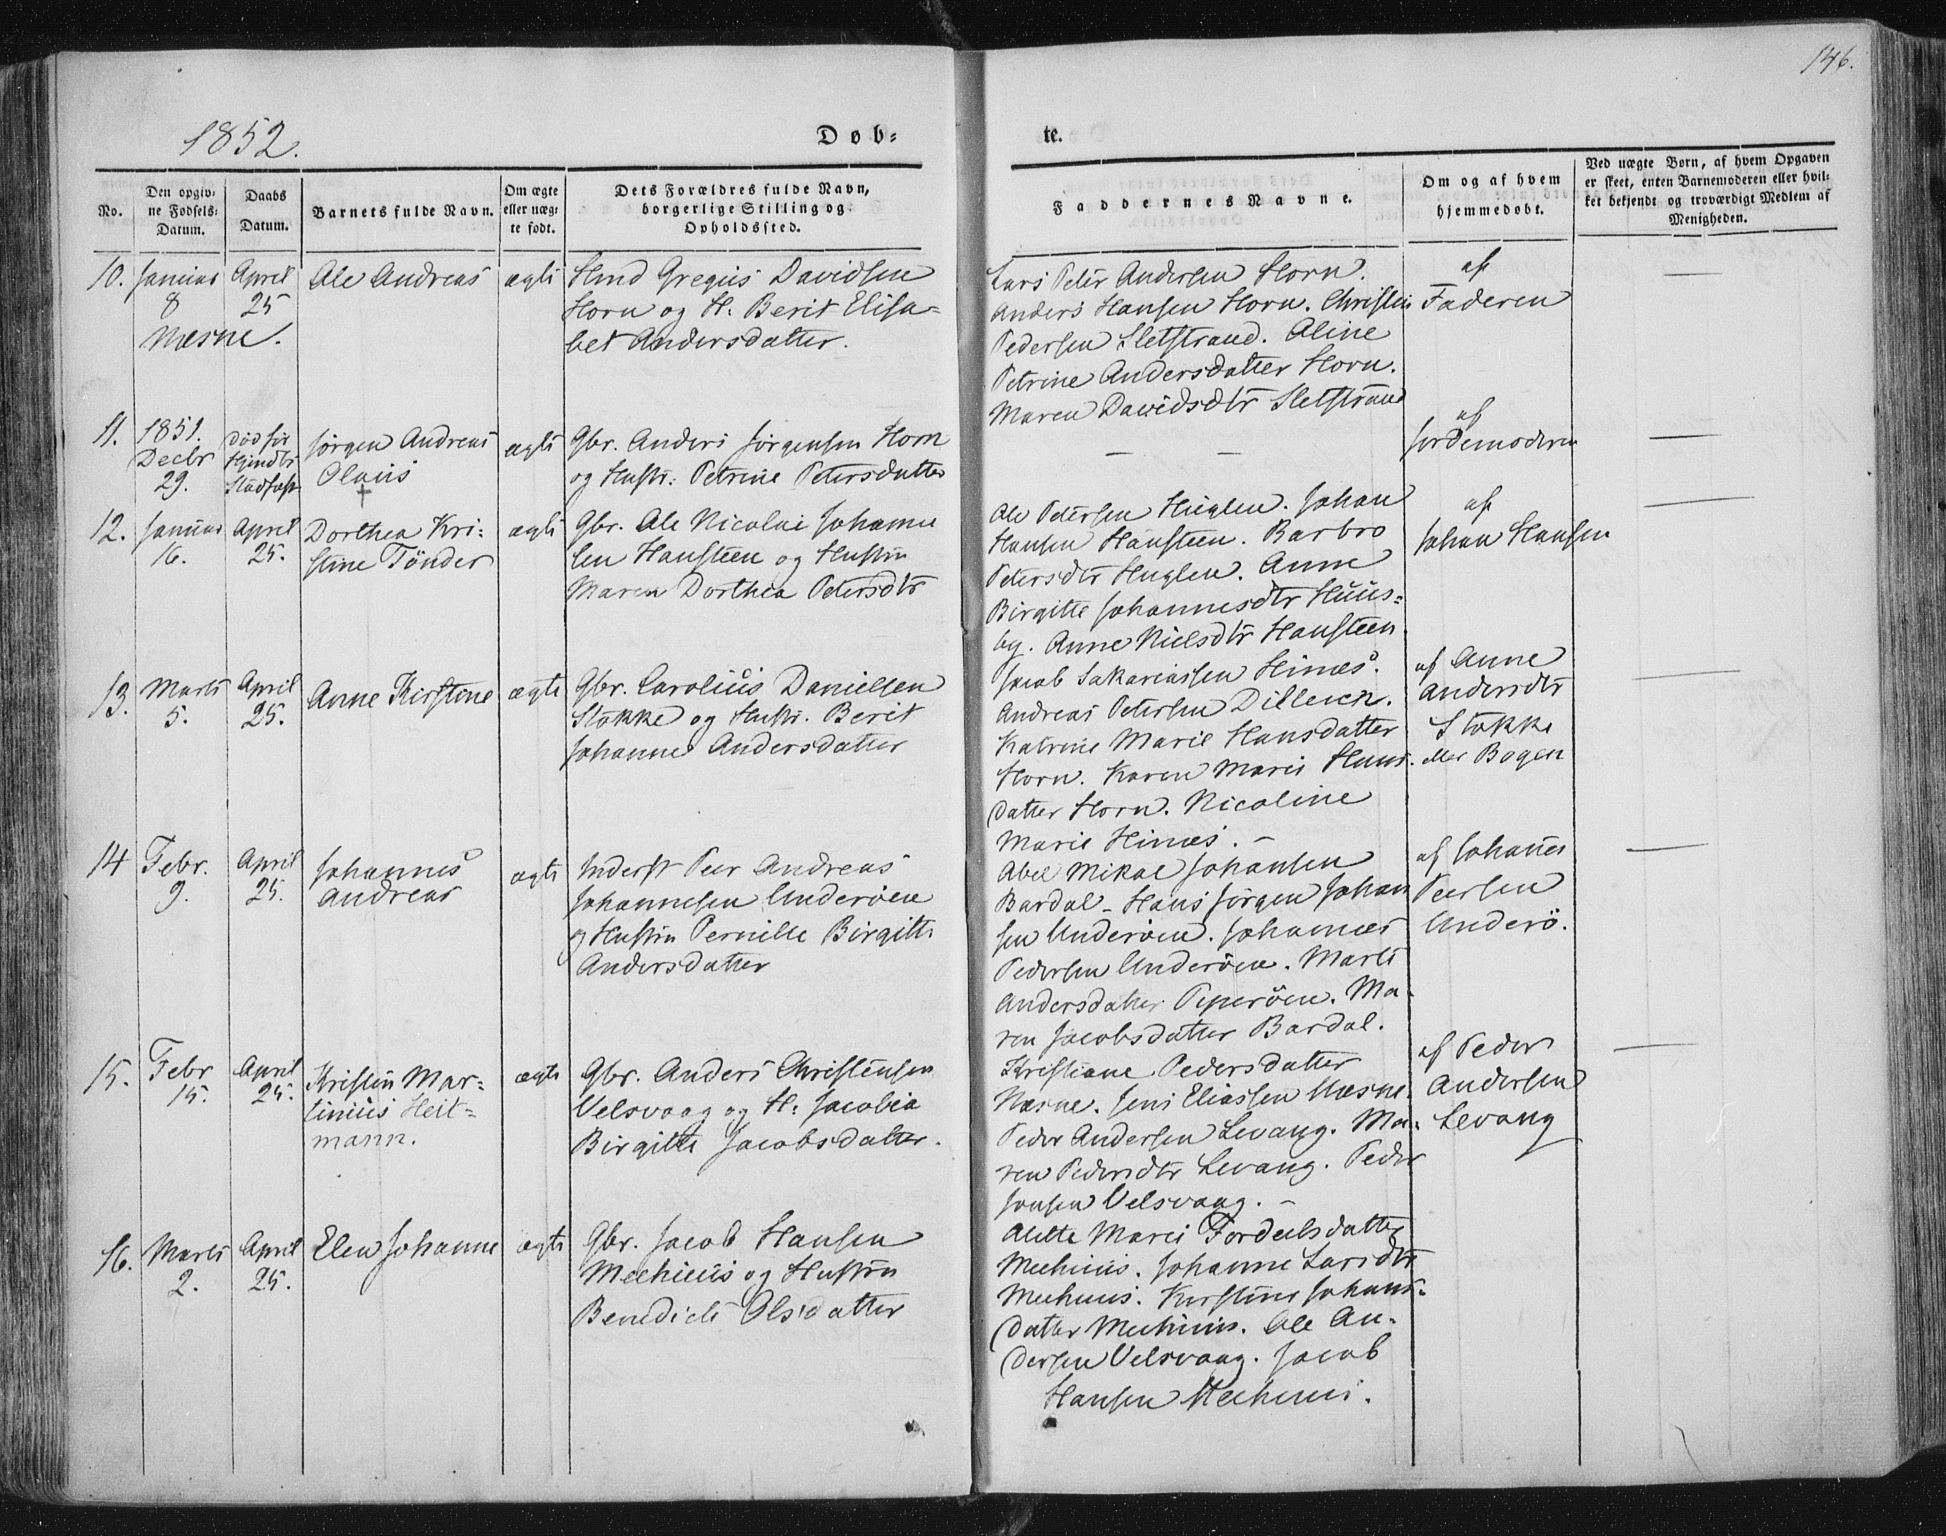 146.
1852.
Døb-
te.
No.
Den opgiv-
ne Fødsels-
Datum.
Daabs
Datum.
Barnets fulde Navn.
Om ægte
eller uæg-
te født.
Dets Forældres fulde Navn,
borgerlige Stilling og
Opholdssted.
Faddernes Navne.
Om og af hvem
hjemmedøbt.
Ved uægte Børn, af hvem Opgaven
er skeet, enten Barnemoderen eller hvil-
ket bekjendt og troværdigt Medlem af
Menigheden.
10. Januar
8
Næsne.
April
25
Ole Andreas
ægte
Hmd Gregus Davidsen
Horn og H: Berit Elisa-
bet Andersdatter.
Lars Peter Andersen Horn.
Anders Hansen Horn. Christen
Pedersen Sletstrand. Aline
Petrine Andersdatter Horn.
Maren Davidsdtr Sletstrand
af
Faderen
11. 1851.
Decbr
29.
Død før
Stadfæst
Jørgen Andreas
Olaus
+
ægte
Gbr. Anders Jørgensen Horn
og Hustr: Petrine Petersdatter
— —
af
Jordemoderen
12. Januar
16.
April
25.
Dorthea Kri-
stine Tönder
ægte
Gbr. Ole Nicolai Johanne
sen Hansteen og Hustru
Maren Dorthea Petersdtr
Ole Petersen Huglen. Johan
Hansen Hansteen. Barbro
Petersdtr Huglen. Anne
Birgitte Johannesdtr Huus-
by. Anne Nielsdtr Hansteen.
af
Johan Hansen
13. Marts
5.
April
25.
Anne Kirstine
ægte
Gbr. Carolius Danielsen
Stokke og Hustr. Berit
Johanne Andersdatter
Jacob Sakariassen Himes.
Andreas Petersen Dilleren.
Katrine Marie Hansdatter
Horn. Karen Marie Hans-
datter Horn. Nicoline
Marie Himes. —
af Anne
Andersdtr
Stokke
eller Bogen
14 Febr.
9.
April
25.
Johannes
Andreas
ægte
Inderst Peer Andreas
Johannesen Underøen
og Hustru Pernille Birgitte
Andersdatter
Abel Mikal Johansen
Bardal - Hans Jørgen Johan
sen Underøen. Johannes
Pedersen Underøen. Marte
Andersdatter Peperøen. Ma-
ren Jacobsdatter Bardal.
af Johanes
Peersen
Underö.
15. Febr
15.
April
25.
Kristen Mar-
tinius Heit-
mann.
ægte
Gbr. Anders Christensen
Velsvaag og H: Jacobia
Birgitte Jacobsdatter.
Kristiane Pedersdatter
Næsne. Jens Eliassen Næsne.
Peder Andersen Levang. Ma-
ren Pedersdtr Levang. Peder
Jonsen Velsvaag. —
af Peder
Andersen
Levang
16. Marts
2.
April
25.
Elen Johanne
ægte
Gbr. Jacob Hansen
Meehuus og Hustru
Benedicte Olsdatter
Alette Marie Fordeelsdatter
Meehuus. Johanne Larsdtr
Meehuus. Kirstine Johans-
datter Meehuus. Ole An-
dersen Velsvaag. Jacob
Hansen Meehuus.